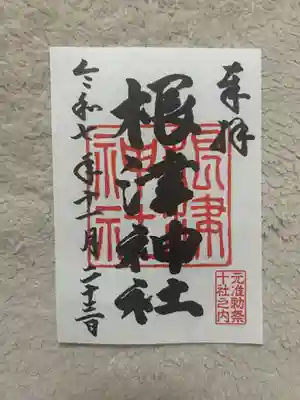 奉拝
根津神社
令和七年十一月二十三日
根津神社
元准勅祭
十社之内